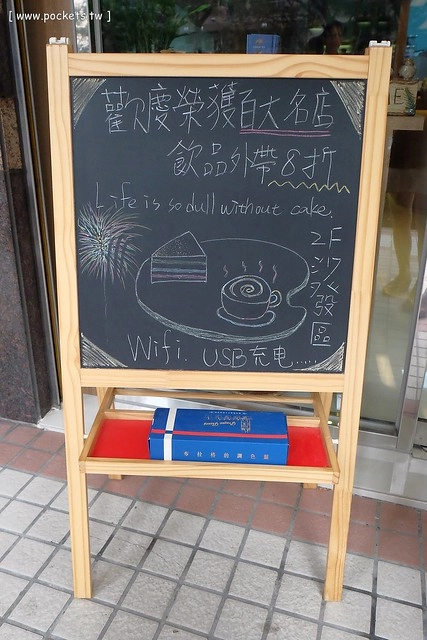 [ www.pockets.tw ]
歡慶榮獲百大名店
飲品外帶8折
Life is so dull without cake.
2F沙發區
Wifi. USB充電.....